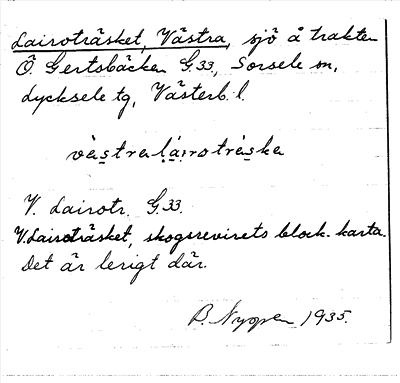 Lairoträsket, Västra, sjö å trakten
Ö. Gertsbäcken G.33, Sorsele sn,
Lycksele tg, Västerb. l.
västralairoträska
V. Lairotr. G.33.
V. Lairoträsket, skogsrevirets block-karta.
Det är lerigt där.
B. 1935.